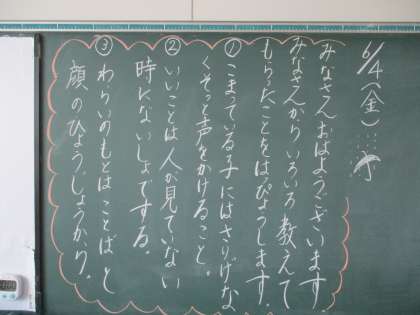 6/4(金)
みなさん、おはようございます。
みなさんからいろいろ教えて
もらったことをはぴょうします。
① こまっている子にはさりげな
くそっと声をかけること。
② いいことは人が見ていない
時にないしょでする。
③ わらいのもとはことばと
顔のひょうじょうかり。